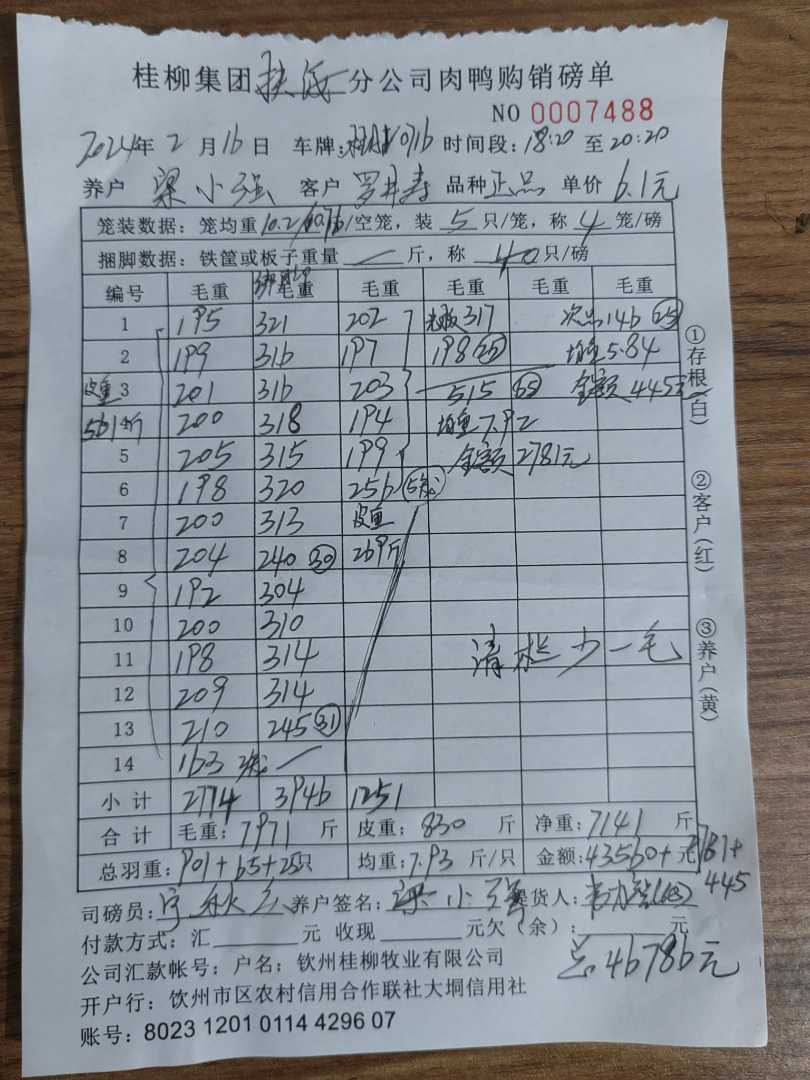 桂柳集团 扶绥 分公司肉鸭购销磅单
NO 0007488
2024年 2 月 16 日 车牌: 0716 时间段: 18:20 至 20:20
养户 梁小强 客户 罗 寿 品种 正品 单价 6.1元
笼装数据: 笼均重 10.2/ /空笼, 装 5 只/笼, 称 4 笼/磅
捆脚数据: 铁筐或板子重量 斤, 称 40 只/磅
编号 毛重 绑脚 毛重 毛重 毛重 毛重 毛重
1 195 321 202 317 次品 146 25
2 199 316 197 198 25 均重 5.84
皮重 3 201 316 203 515 65 金额 445元
561斤 4 200 318 194 均重 7.92
5 205 315 199 金额 2781元
6 198 320 256
7 200 313 皮重
8 204 240 30 269斤
9 192 304
10 200 310
11 198 314 请栏少一毛
12 209 314
13 210 245 31
14 163
小计 2774 3946 1251
合计 毛重: 7971 斤 皮重: 830 斤 净重: 7141 斤
总羽重: 901+65+25只 均重: 7.93 斤/只 金额: 43560+ 元 2781+
445
司磅员: 养户签名: 梁小强 提货人:
付款方式: 汇 元 收现 元欠(余): 元
公司汇款帐号: 户名: 钦州桂柳牧业有限公司
总46786元
开户行: 饮州市区农村信用合作联社大垌信用社
账号: 8023 1201 0114 4296 07
①存根(白)
②客户(红)
③养户(黄)